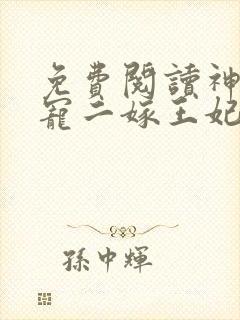 免費閱讀神
寵二嫁王妃
孫中輝